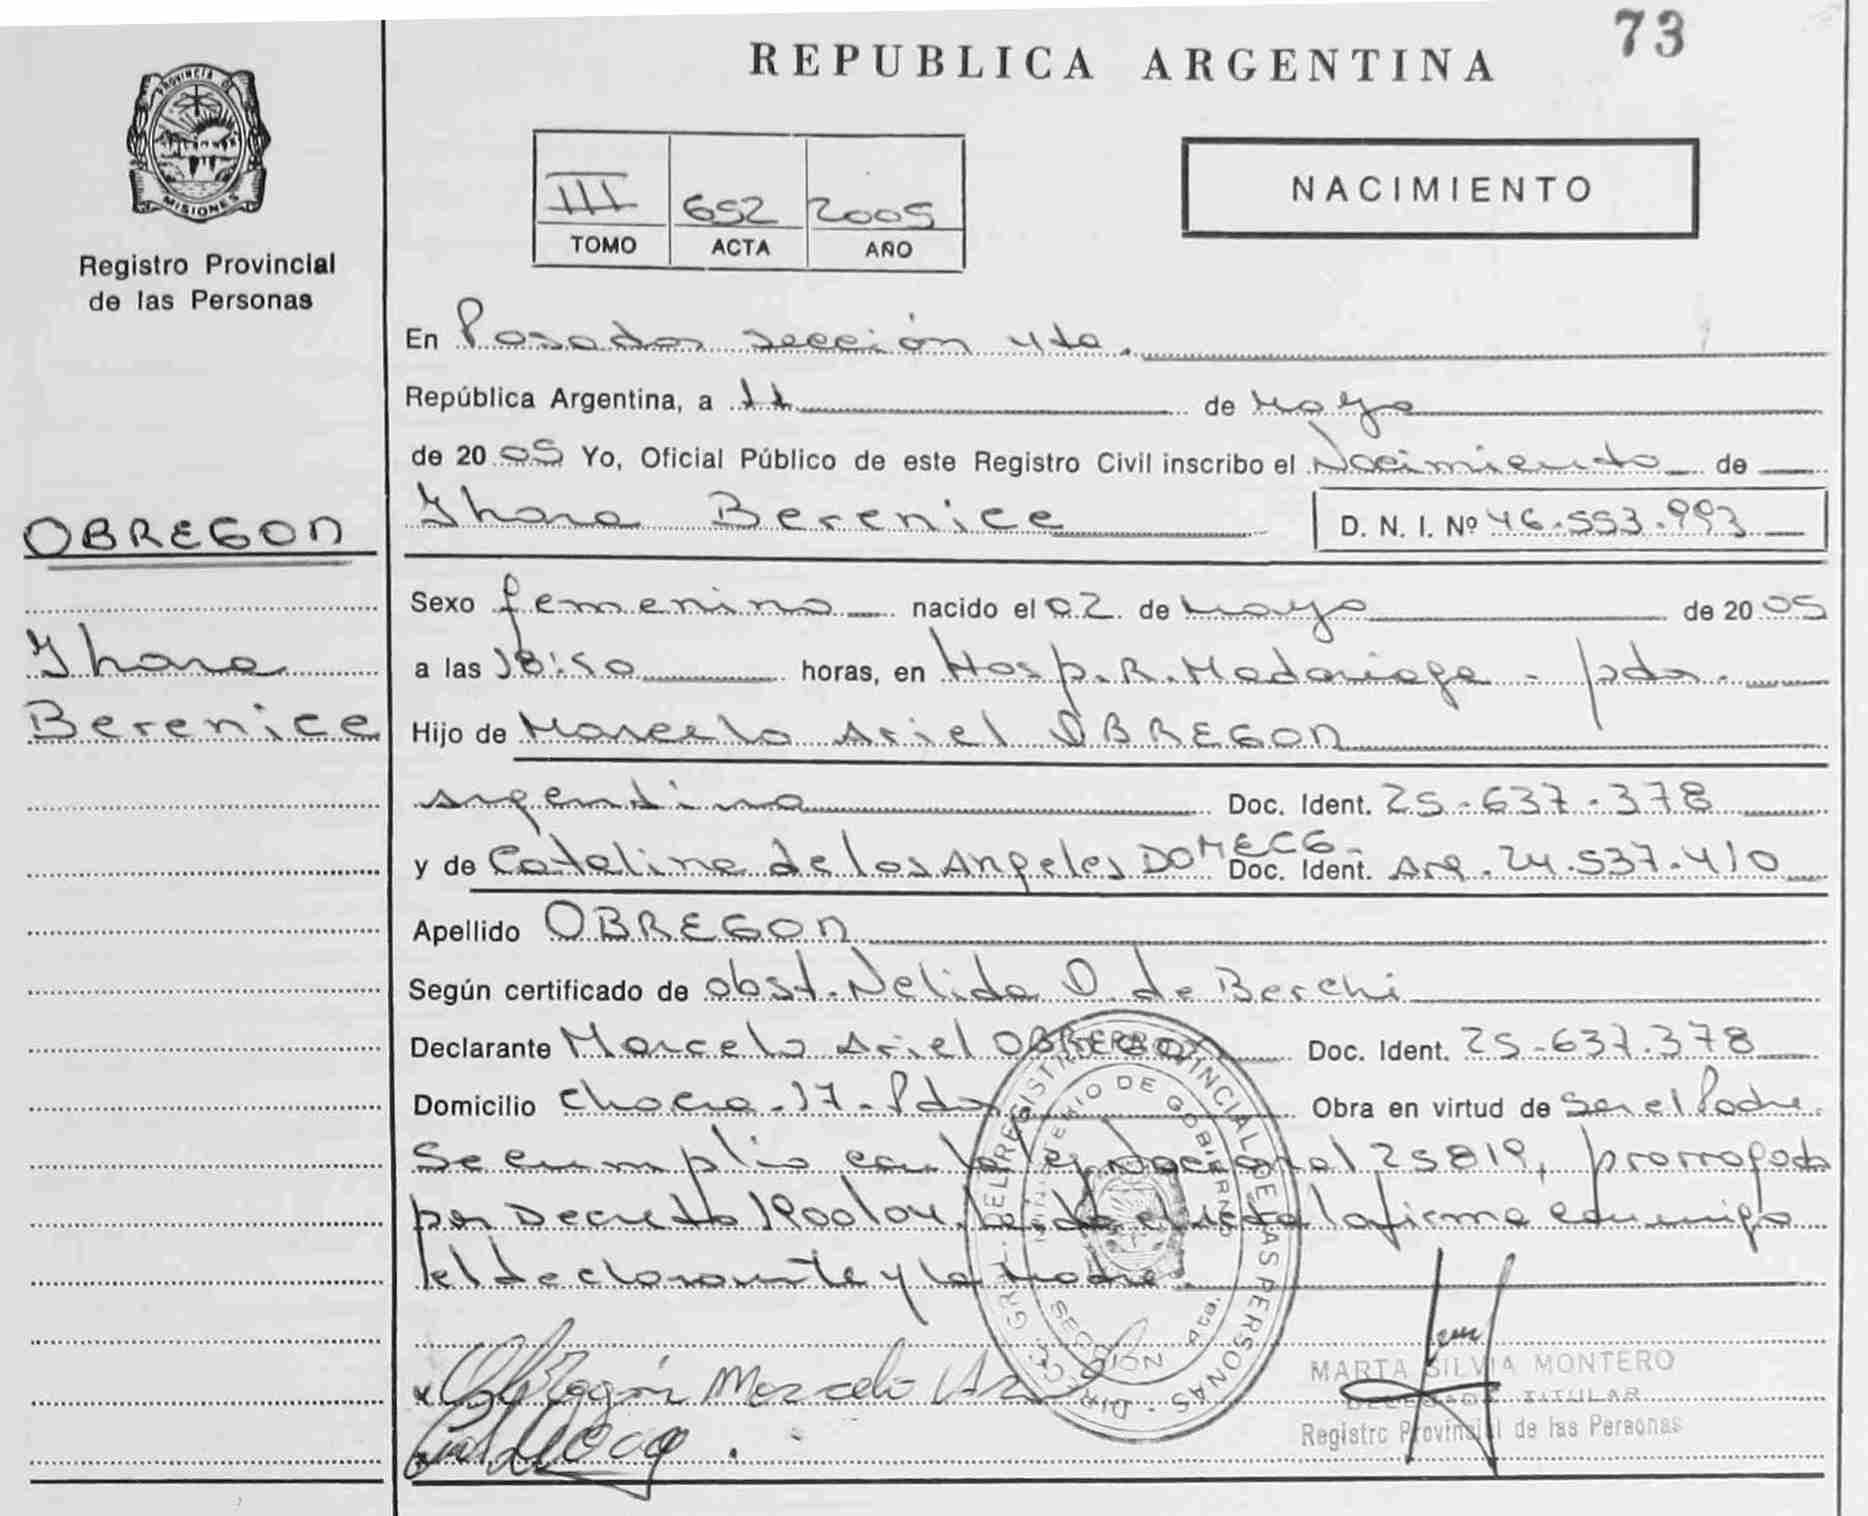 73
REPUBLICA ARGENTINA
PROVINCIA DE
MISIONES
Registro Provincial
de las Personas
III 652 2005
TOMO ACTA AÑO
NACIMIENTO
En Posadas sección 4ta.
República Argentina, a 11 de Mayo
de 2005 Yo, Oficial Público de este Registro Civil inscribo el Nacimiento de
Ihara Berenice D. N. I. Nº 46.553.993
OBREGON
Ihara
Berenice
Sexo femenino nacido el 02 de Mayo de 2005
a las 18:50 horas, en Hosp. R. Madariaga - pdas.
Hijo de Marcelo Ariel OBREGON
argentino Doc. Ident. 25-637-378
y de Catalina de los Angeles DOMECG Doc. Ident. Arg. 24.537.410
Apellido OBREGON
Según certificado de obst. Nelida O. de Berchi
Declarante Marcelo Ariel OBREGON Doc. Ident. 25-637.378
Domicilio Chacra-17-Pdas Obra en virtud de Ser el Padre
Se cumplio con la ley nacional 25819, prorrogada
por Decreto 1900/04. Leida el acta la firma conmigo
el declarante y la Madre.
DIREC. GRAL. DEL REGISTRO PROVINCIAL DE LAS PERSONAS
MINISTERIO DE GOBIERNO
SECCION 4ta.
x Obregón Marcelo Ariel
MARTA SILVIA MONTERO
DELEGADA TITULAR
Registro Provincial de las Personas